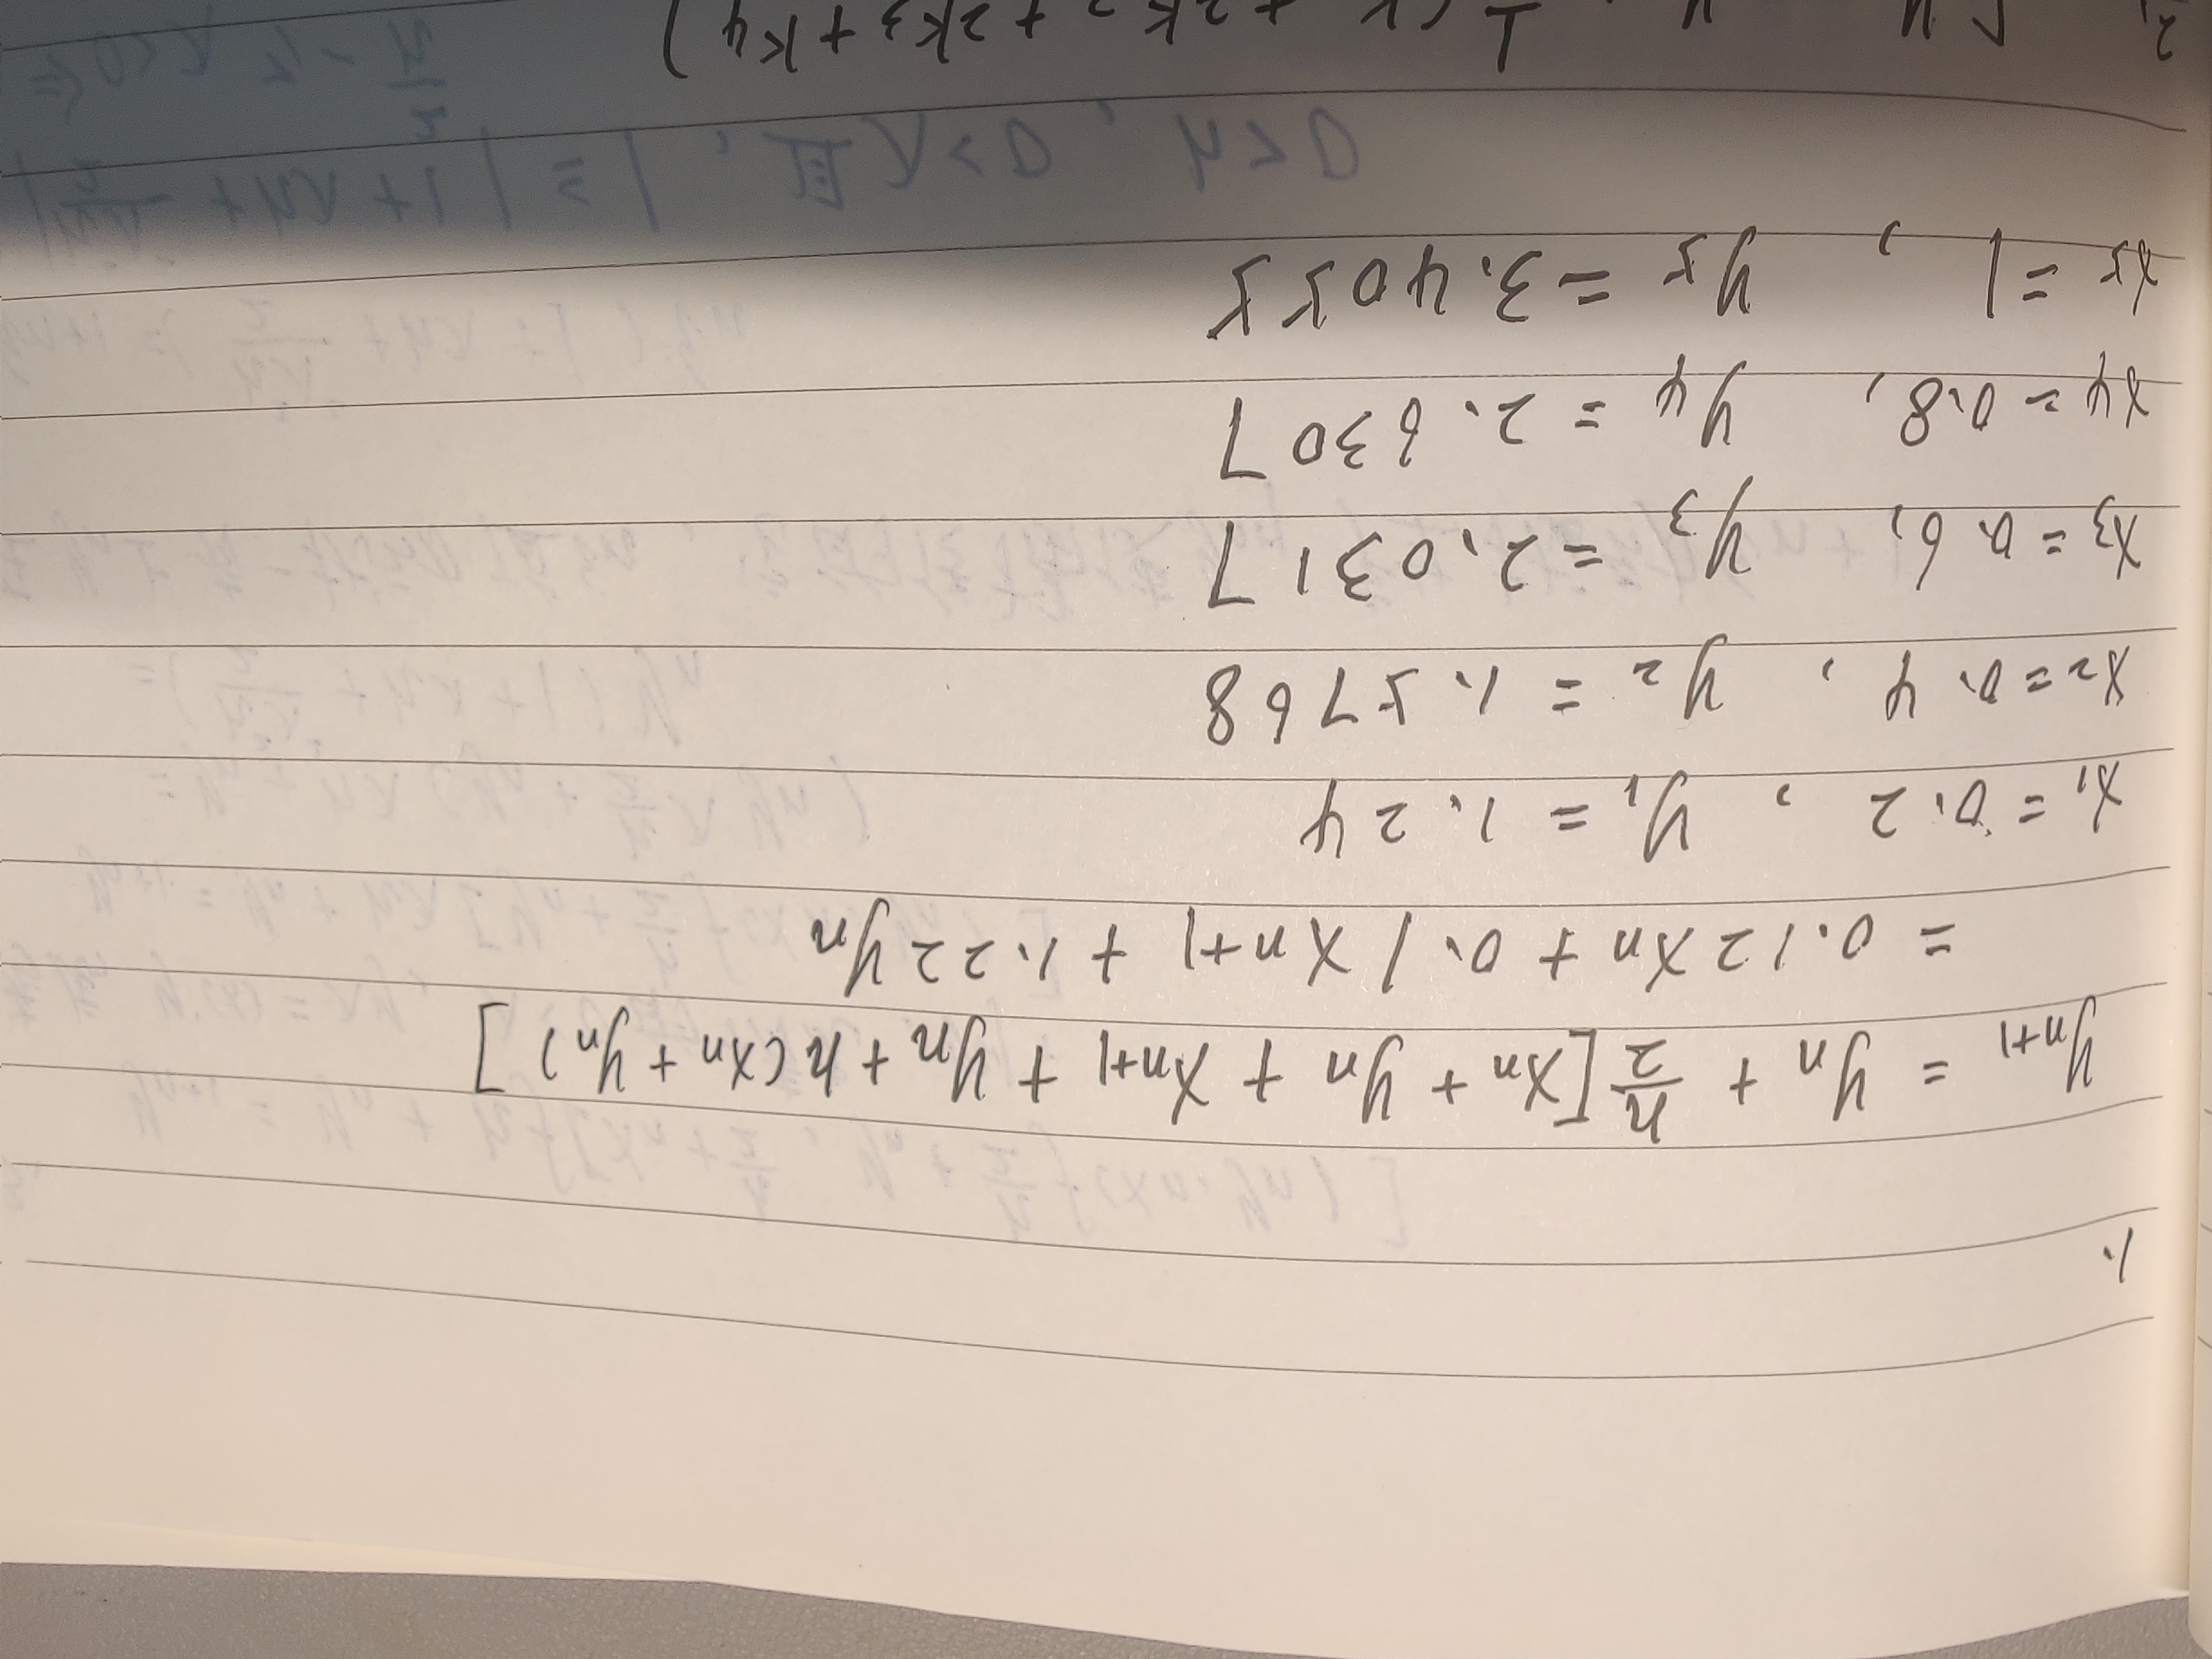 1.
y_{n+1} = y_n + \frac{h}{2} [x_n + y_n + x_{n+1} + y_n + h(x_n + y_n)]
= 0.12 x_n + 0.1 x_{n+1} + 1.22 y_n
x_1 = 0.2, y_1 = 1.24
x_2 = 0.4, y_2 = 1.5768
x_3 = 0.6, y_3 = 2.0317
x_4 = 0.8, y_4 = 2.6307
x_5 = 1, y_5 = 3.4055
2.
+ 2k_3 + k_4)